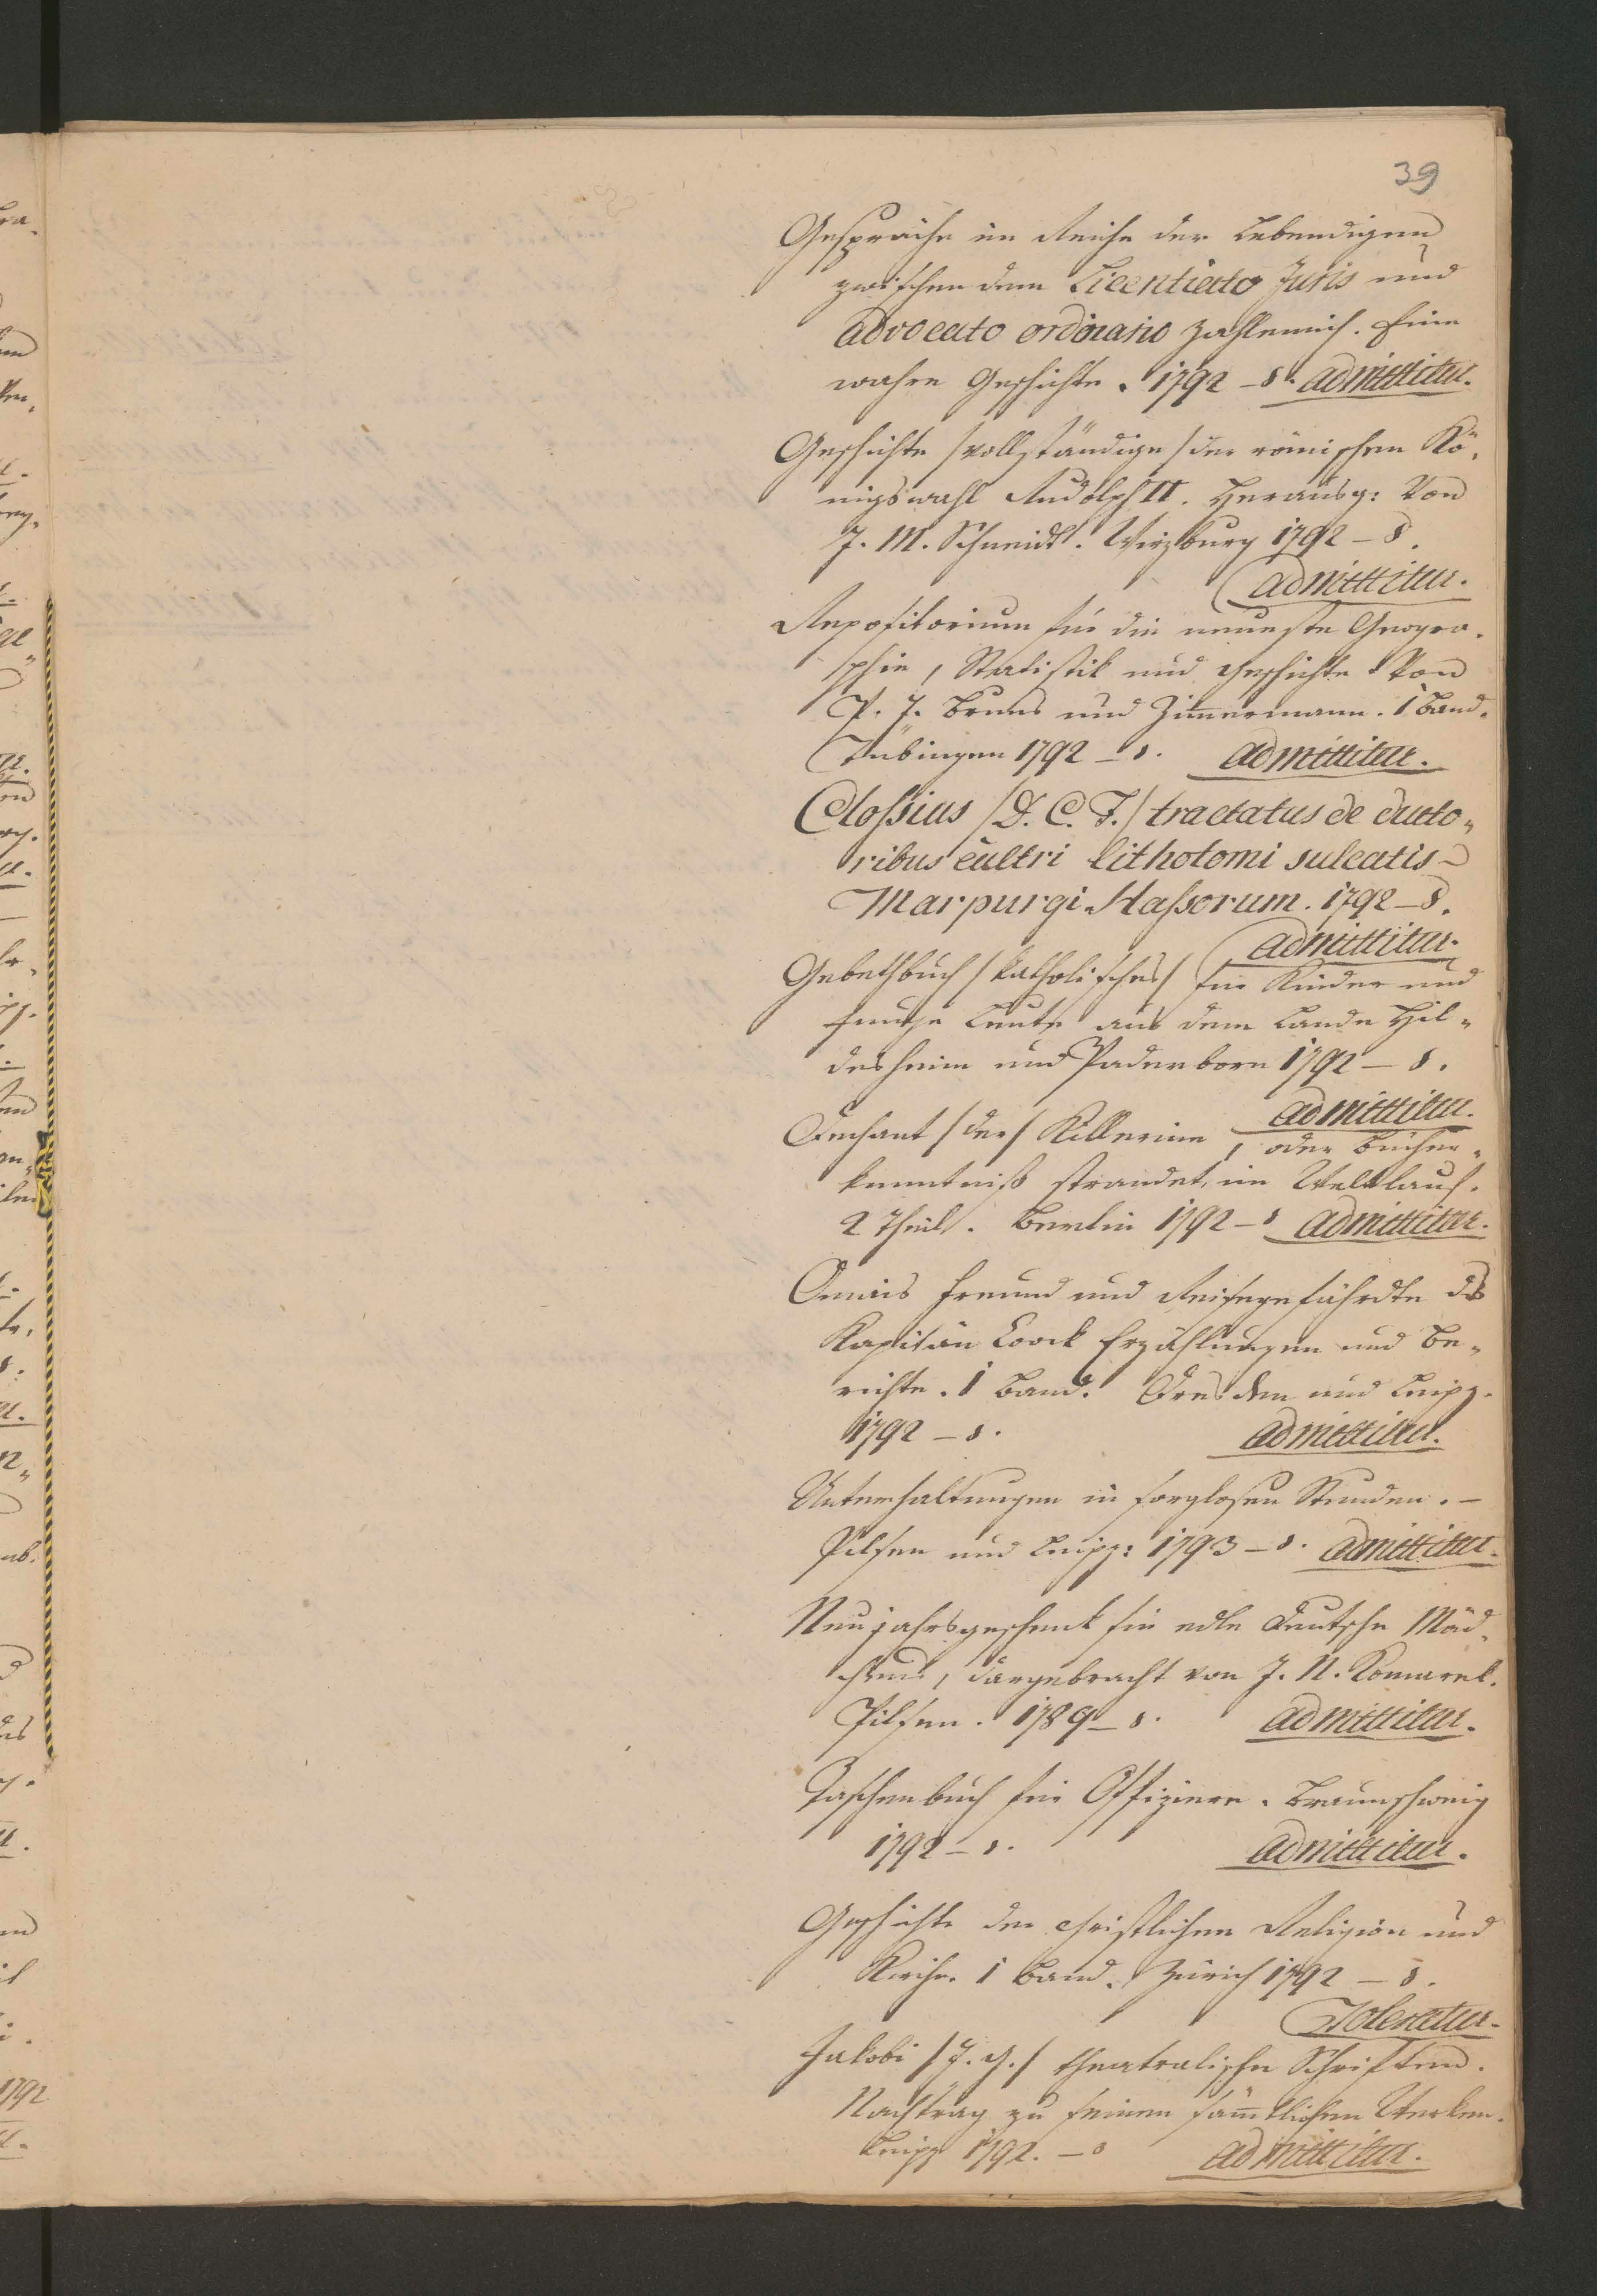 39
Gespräche im Reiche der Lebendigen
zwischen dem Licentiato Juris und
advocato ordinario Zahlemich. Eine
wahre Geschichte. 1792 – 8. admittitur.
Geschichte /vollständige/ der römischen Kö,
nigswahl Rudolph II. Herausg: Von
J. M. Schmidt. Wirzburg 1792 – 8.
admittitur.
Repositorium für die neueste Geogra,
phie, Statistik und Geschichte Von
P. J. Bruns und Zimmermann. 1 Band.
Tübingen 1792 – 8. admittitur.
Clossius /D. C. F./ tractatus de ducto„
ribus cultri lithotomi sulcatis –
Marpurgi Hassorum. 1792 – 8.
admittitur.
Gebethbuch /katholisches/ für Kinder und
junge Leute aus dem Lande Hil„
desheim und Paderborn 1792 – 8.
admittitur.
Dechant /der/ Killerine, oder Bücher„
kenntniß strandet im Weltlauf.
2 Theil. Berlin 1792 – 8 admittitur.
Omais Freund und Reisegefährdte des
Kapitän Coock Erzählungen und Be„
richte. 1 Band. Dresden und Leipz.
1792 – 8. admittitur.
Unterhaltungen in sorglosen Stunden. –
Pilsen und Leipz: 1793 – 8. admittitur.
Neujahrsgeschenk für edle deutsche Mäd„
chen, dargebracht von J. N. Komarek.
Pilsen. 1789 – 8. admittitur.
Taschenbuch für Offiziere. Braunschweig
1792 – 8. admittitur.
Geschichte der christlichen Religion und
Kirche. 1 Band. Zürich 1792 – 8.
Toleratur.
Jakobi /J. G./ theatralische Schriften.
Nachtrag zu seinen sämtlichen Werken.
Leipz 1792. – 8 admittitur.